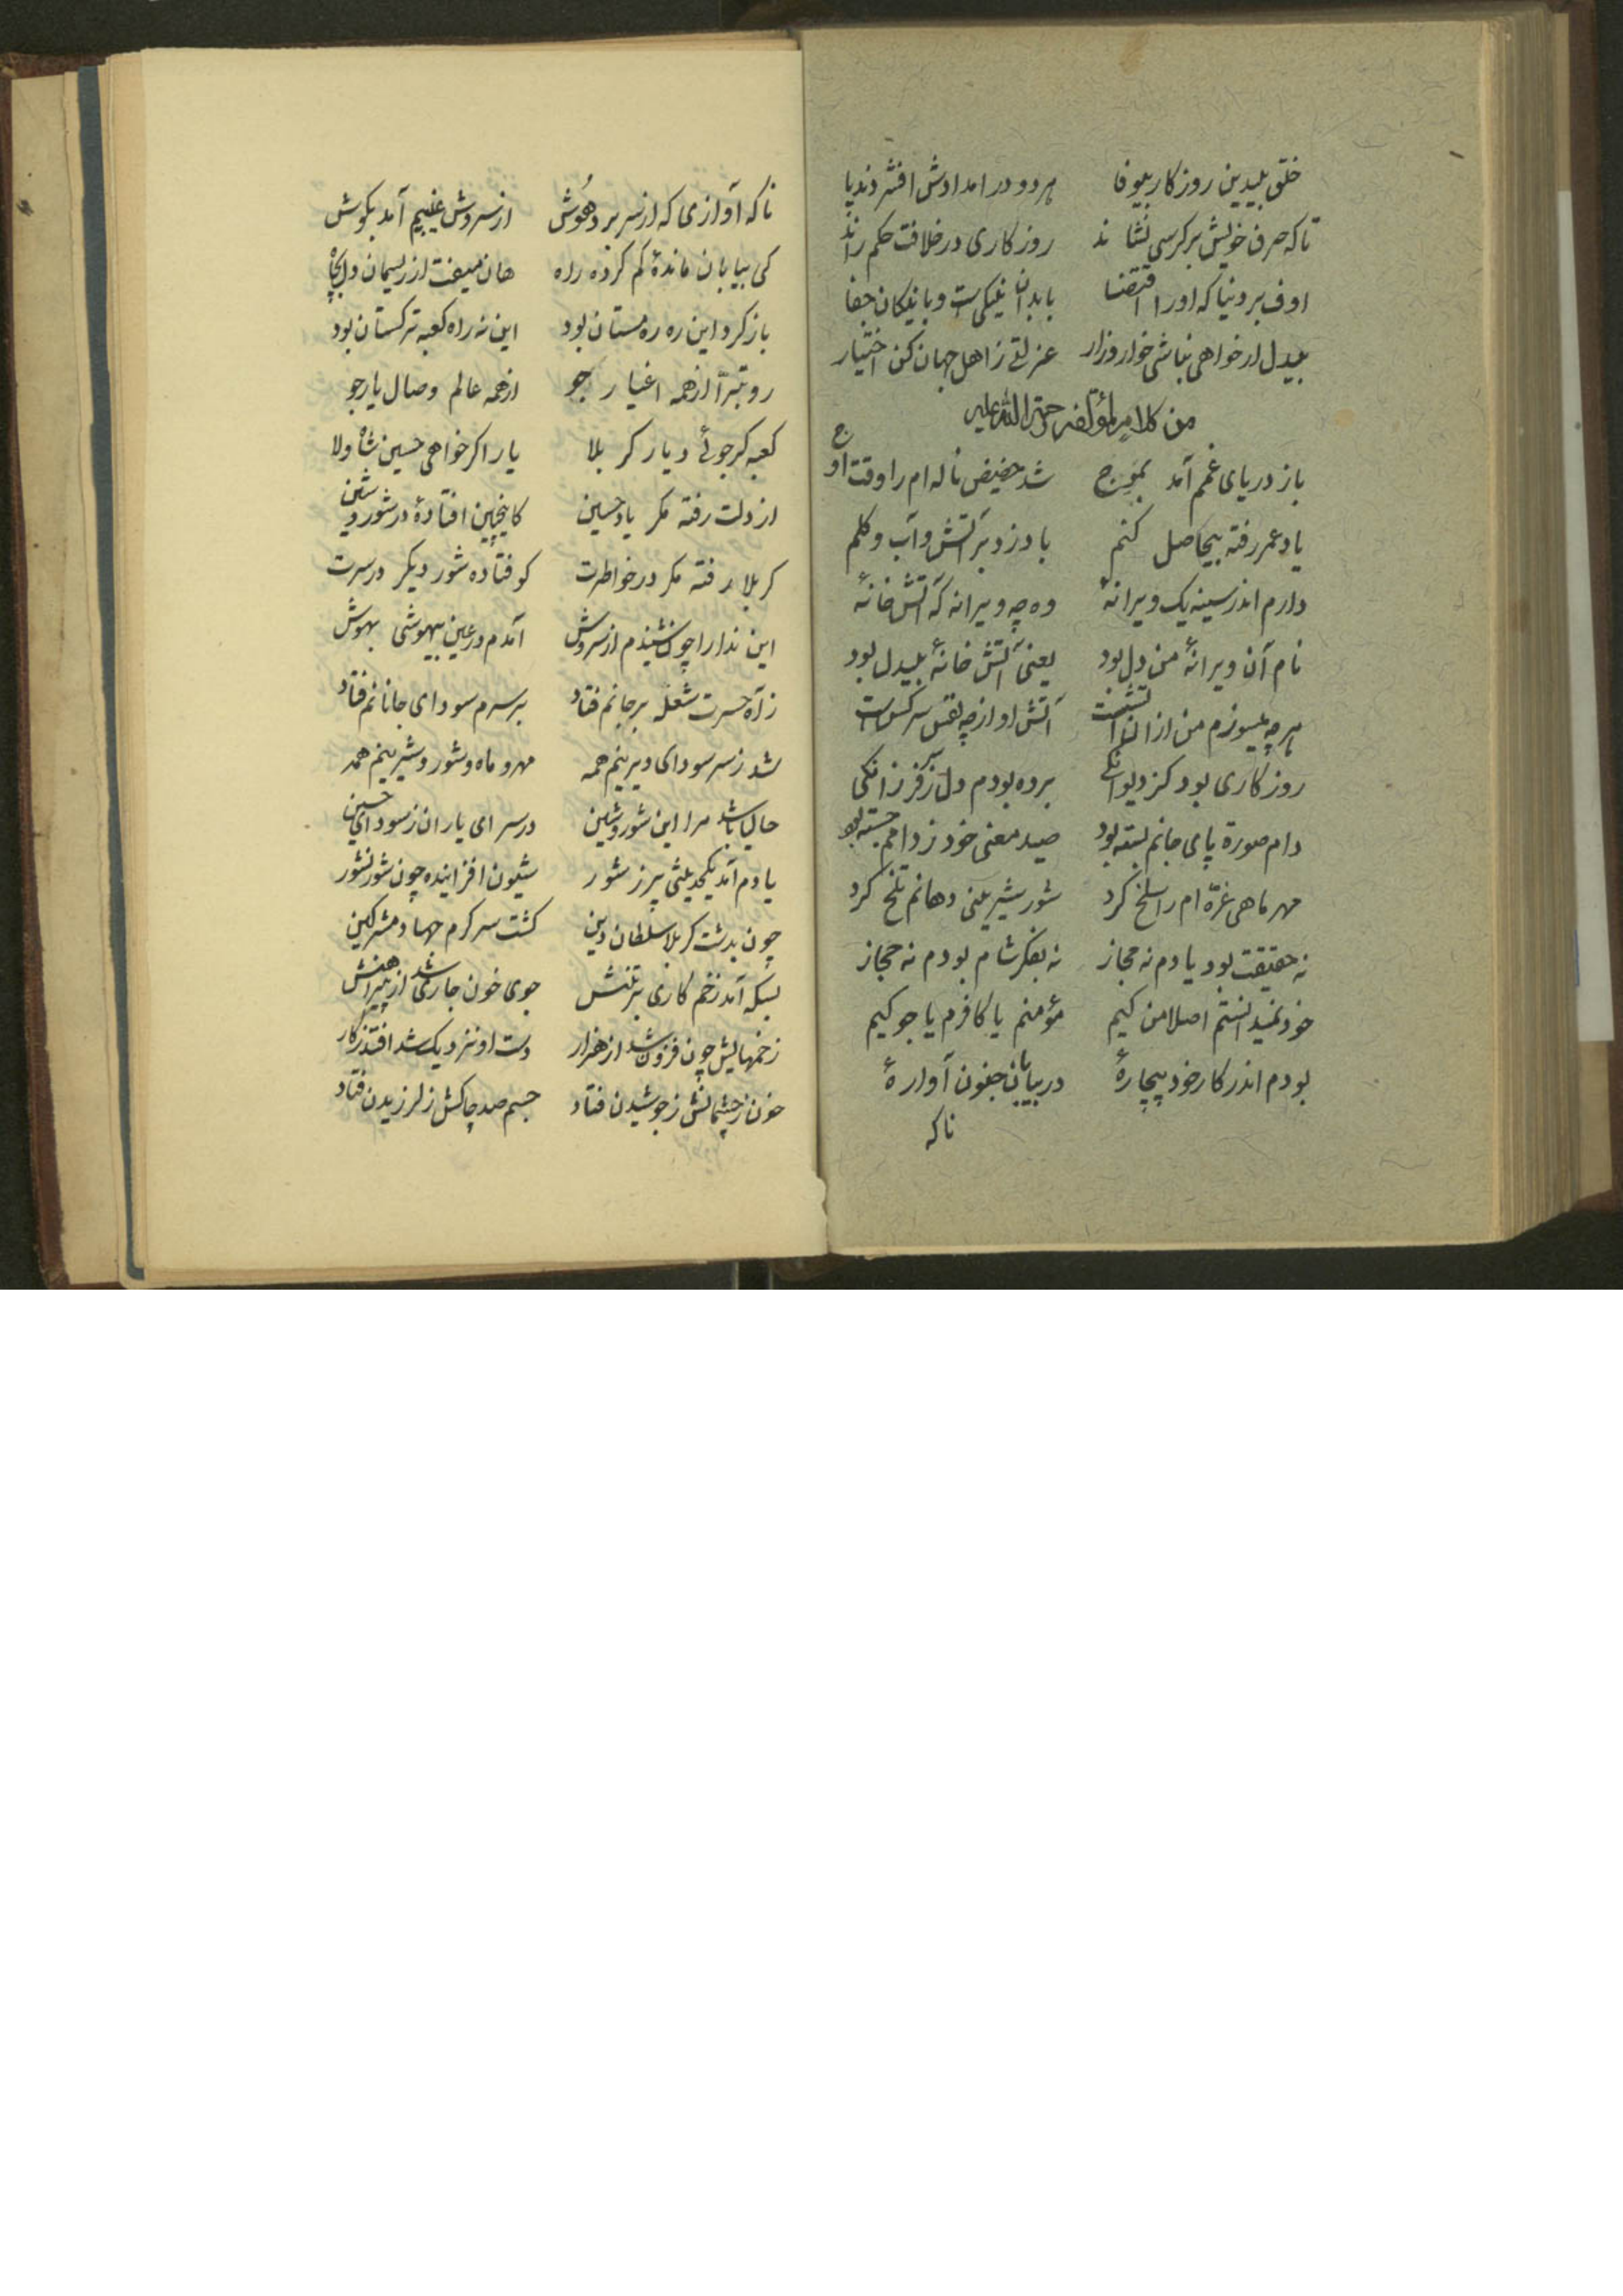 خلق بیدین روزکار بیوفا هر دو در امدادش افشردند پا
تا که صرف خویش بر کرسی نشاند روزکاری در خلافت حکم راند
اوف بر دنیا که او را اقتضا با بدان نیکی است و با نیکان جفا
بیدل ار خواهی نباشی خوار و زار عزلتی ز اهل جهان کن اختیار
من کلام مؤلفه رحمة الله علیه
باز دریای غمم آمد بموج شد حضیض ناله ام را وقت اوج
یاد عمر رفته بیحاصل کنم باد زد بر آتش و آب و کلم
دارم اندر سینه یک ویرانهٔ وه چه ویرانه که آتش خانهٔ
نام آن ویرانهٔ من دل بود یعنی آتش خانهٔ بیدل بود
هر چه میسوزم من از ان آتشست آتش او از چه نفس سرکش است
روزکاری بود کز دیوانکی برده بودم دل ز فرزانکی
دام صورة پای جانم بسته بود صید معنی خود ز دامم جسته بود
مهر ماهی غرّه ام را سلخ کرد شور شیرینی دهانم تلخ کرد
نه حقیقت بود یادم نه مجاز نه بفکر شام بودم نه حجاز
خود نمیدانستم اصلا من کیم مؤمنم یا کافرم یا جوکیم
بودم اندر کار خود بیچارهٔ در بیابان جنون آوارهٔ
ناکه
ناکه آوازی که از سر برد هوش از سروش غیبیم آمد بکوش
کی بیابان ماندهٔ کم کرده راه هان میفت از ریسمان در بچاه
بازکرد این ره ره مستان بود این نه راه کعبه ترکستان بود
رو تبرّا از همه اغیار جو از همه عالم وصال یار جو
کعبه کر جوئی دیار کربلا یار اکر خواهی حسین شاه ولا
از دلت رفته مکر یاد حسین کاینچنین افتادهٔ در شور و شین
کربلا رفته مکر در خواطرت کوفتاده شور دیکر در سرت
این ندا را چون شنیدم از سروش آمدم در عین بیهوشی بهوش
ز آه حسرت شعله بر جانم فتاد بر سرم سودای جانانم فتاد
شد ز سر سودای دیرینم همه مهر و ماه و شور و شیرینم همه
حالیا باشد مرا این شور و شین در سرای یاران ز سودای حسین
یادم آمد یکحدیثی پر ز شور شیون افزاینده چون شور نشور
چون بدشت کربلا سلطان دین کشت سرکرم جهاد مشرکین
بسکه آمد زخم کاری بر تنش جوی خون جاری شد از پیراهنش
زخمهایش چون فزون شد از هزار دست او نزدیک شد افتد ز کار
خون ز چشمانش ز جوشیدن فتاد جسم صد چاکش ز لرزیدن فتاد